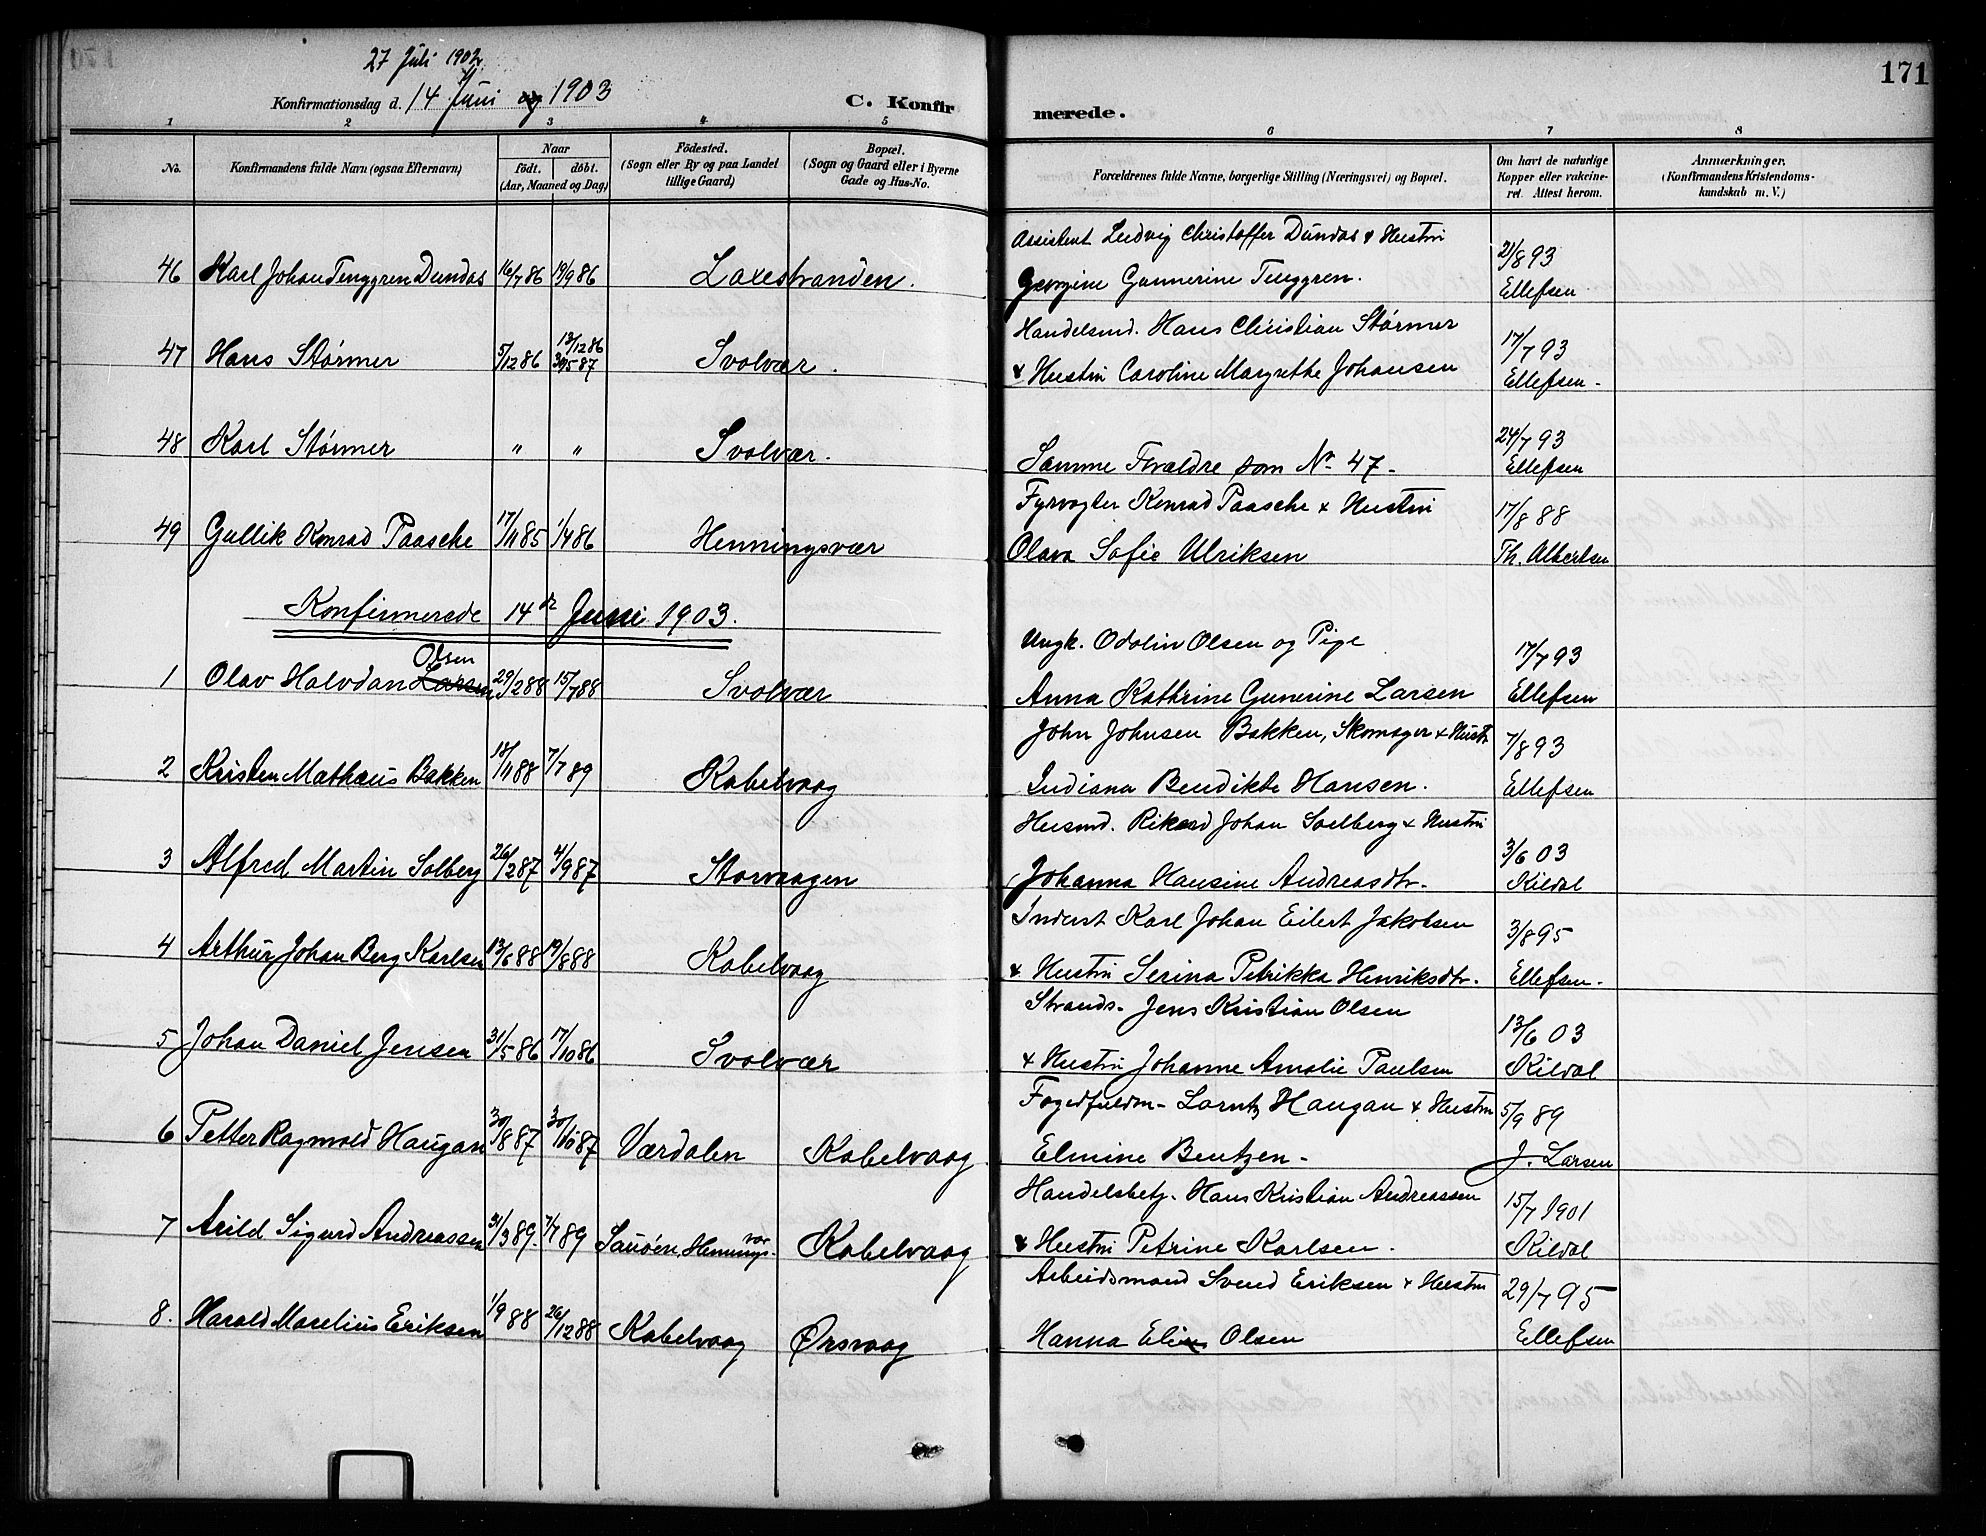 171
27 Juli 1902
Konfirmationsdag d. 14 Juni og 1903
C. Konfir merede.
1 2 3 4 5 6 7 8
No.
Konfirmandens fulde Navn (ogsaa Efternavn)
Naar
födt. döbt.
(Aar, Maaned og Dag)
Födested.
(Sogn eller By og paa Landet
tillige Gaard)
Bopæl.
(Sogn og Gaard eller i Byerne
Gade og Hus-No.
Forældrenes fulde Navne, borgerlige Stilling (Næringsvei) og Bopæl.
Om havt de naturlige
Kopper eller vakcine-
ret. Attest herom.
Anmærkninger.
(Konfirmandens Kristendoms-
kundskab m. V.)
Assistent Ludvig Christoffer Dundas & Hustru 21/8 93
46 Karl Johan Tenggren Dundas 16/7 86 19/9 86 Laxestranden. Georgine Gunnerine Tenggren. Ellefsen
Handelsmd. Hans Christian Størmer 17/7 93
13/12 86
47 Hans Størmer 5/12 86 30/5 87 Svolvær. & Hustru Caroline Margrethe Johansen Ellefsen-
24/7 93
48 Karl Størmer " " Svolvær. Samme Forældre som No 47- Ellefsen
Fyrvogter Konrad Paasche & Hustru 17/8 88
49 Gullik Konrad Paasche 17/11 85 1/4 86 Henningsvær Olava Sofie Ulriksen Th. Albertsen
Konfirmerede 14de Juni 1903.
Ungk. Odolin Olsen og Pige 17/7 93
Olsen
1 Olav Halvdan Larsen 29/2 88 15/7 88 Svolvær Anna Kathrine Gunerine Larsen Ellefsen
John Johnsen Bakken, Skomager & Hustr 7/8 93
2 Kristen Mathæus Bakken 18/11 88 7/7 89 Kabelvaag Indiana Bendikte Hansen. Ellefsen
Husmd. Rikard Johan Soelberg & Hustru 3/6 03
3 Alfred Martin Solberg 26/2 87 4/9 87 Storvaagen Johanna Hansine Andreasdtr. Kildal
Inderst Karl Johan Eilert Jakobsen 3/8 95
4 Arthur Johan Berg Karlsen 13/6 88 19/8 88 Kabelvaag & Hustru Serina Petrikka Henriksdtr. Ellefsen.
Strands- Jens Kristian Olsen 13/6 03
5 Johan Daniel Jensen 31/5 86 17/10 86 Svolvær & Hustru Johanne Amalie Paulsen Kildal
Fogedfuldm- Lorntz Haugan & Hustru 5/9 89
6 Petter Ragnvald Haugan 30/8 87 30/10 87 Værdalen Kabelvaag Elmine Bentzen- J. Larsen
Handelsbetj. Hans Kristian Andreassen 15/7 1901
7 Arild Sigurd Andreassen 31/3 89. 7/7 89 Sauöen, Hennings-vær Kabelvaag & Hustru Petrine Karlsen. Kildal
Arbeidsmand Svend Eriksen & Hustru 29/7 95
8. Harald Marelius Eriksen 1/9 88 26/12 88 Kabelvaag Ørsvaag Hanna Olsen Ellefsen